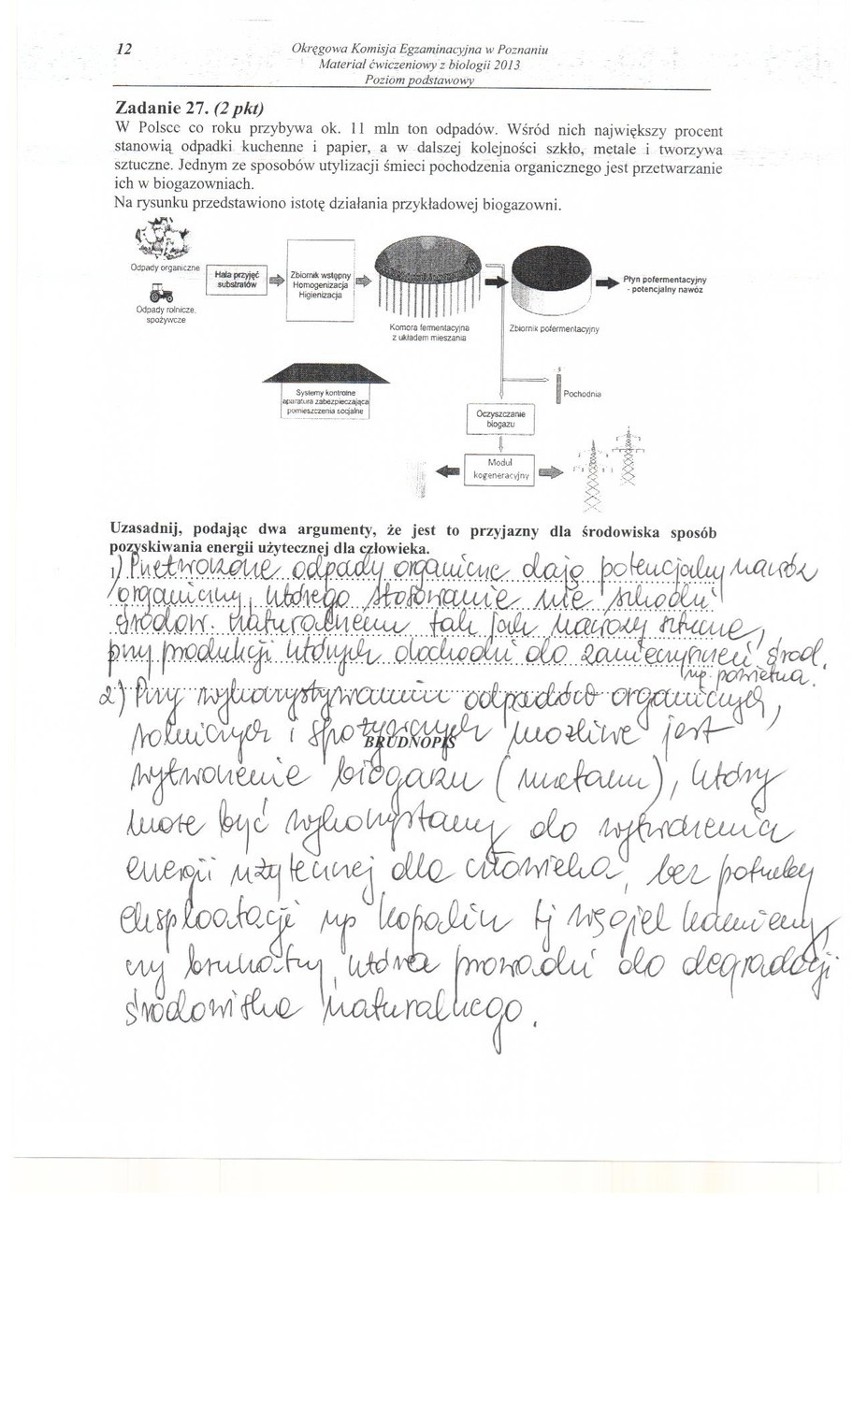 12
Okręgowa Komisja Egzaminacyjna w Poznaniu
Materiał ćwiczeniowy z biologii 2013
Poziom podstawowy
Zadanie 27. (2 pkt)
W Polsce co roku przybywa ok. 11 mln ton odpadów. Wśród nich największy procent
stanowią odpadki kuchenne i papier, a w dalszej kolejności szkło, metale i tworzywa
sztuczne. Jednym ze sposobów utylizacji śmieci pochodzenia organicznego jest przetwarzanie
ich w biogazowniach.
Na rysunku przedstawiono istotę działania przykładowej biogazowni.
Odpady organiczne
Odpady rolnicze,
spożywcze
Hala przyjęć
substratów
Zbiornik wstępny
Homogenizacja
Higienizacja
Komora fermentacyjna
z układem mieszania
Zbiornik pofermentacyjny
Płyn pofermentacyjny
- potencjalny nawóz
Systemy kontrolne
aparatura zabezpieczająca
pomieszczenia socjalne
Pochodnia
Oczyszczanie
biogazu
Moduł
kogeneracyjny
Uzasadnij, podając dwa argumenty, że jest to przyjazny dla środowiska sposób
pozyskiwania energii użytecznej dla człowieka.
1) Przetworzone odpady organiczne dają potencjalny nawóz
organiczny, którego stosowanie nie szkodzi
środow. naturalnemu tak jak nawozy sztuczne,
przy produkcji których dochodzi do zanieczyszczeń środ.
np. powietrza.
2) Przy wykorzystywaniu odpadów organicznych,
rolniczych i spożywczych możliwe jest
BRUDNOPIS
wytworzenie biogazu (metanu), który
może być wykorzystany do wytworzenia
energii użytecznej dla człowieka, bez potrzeby
eksploatacji np kopalin tj węgiel kamienny
czy brunatny, która prowadzi do degradacji
środowiska naturalnego.